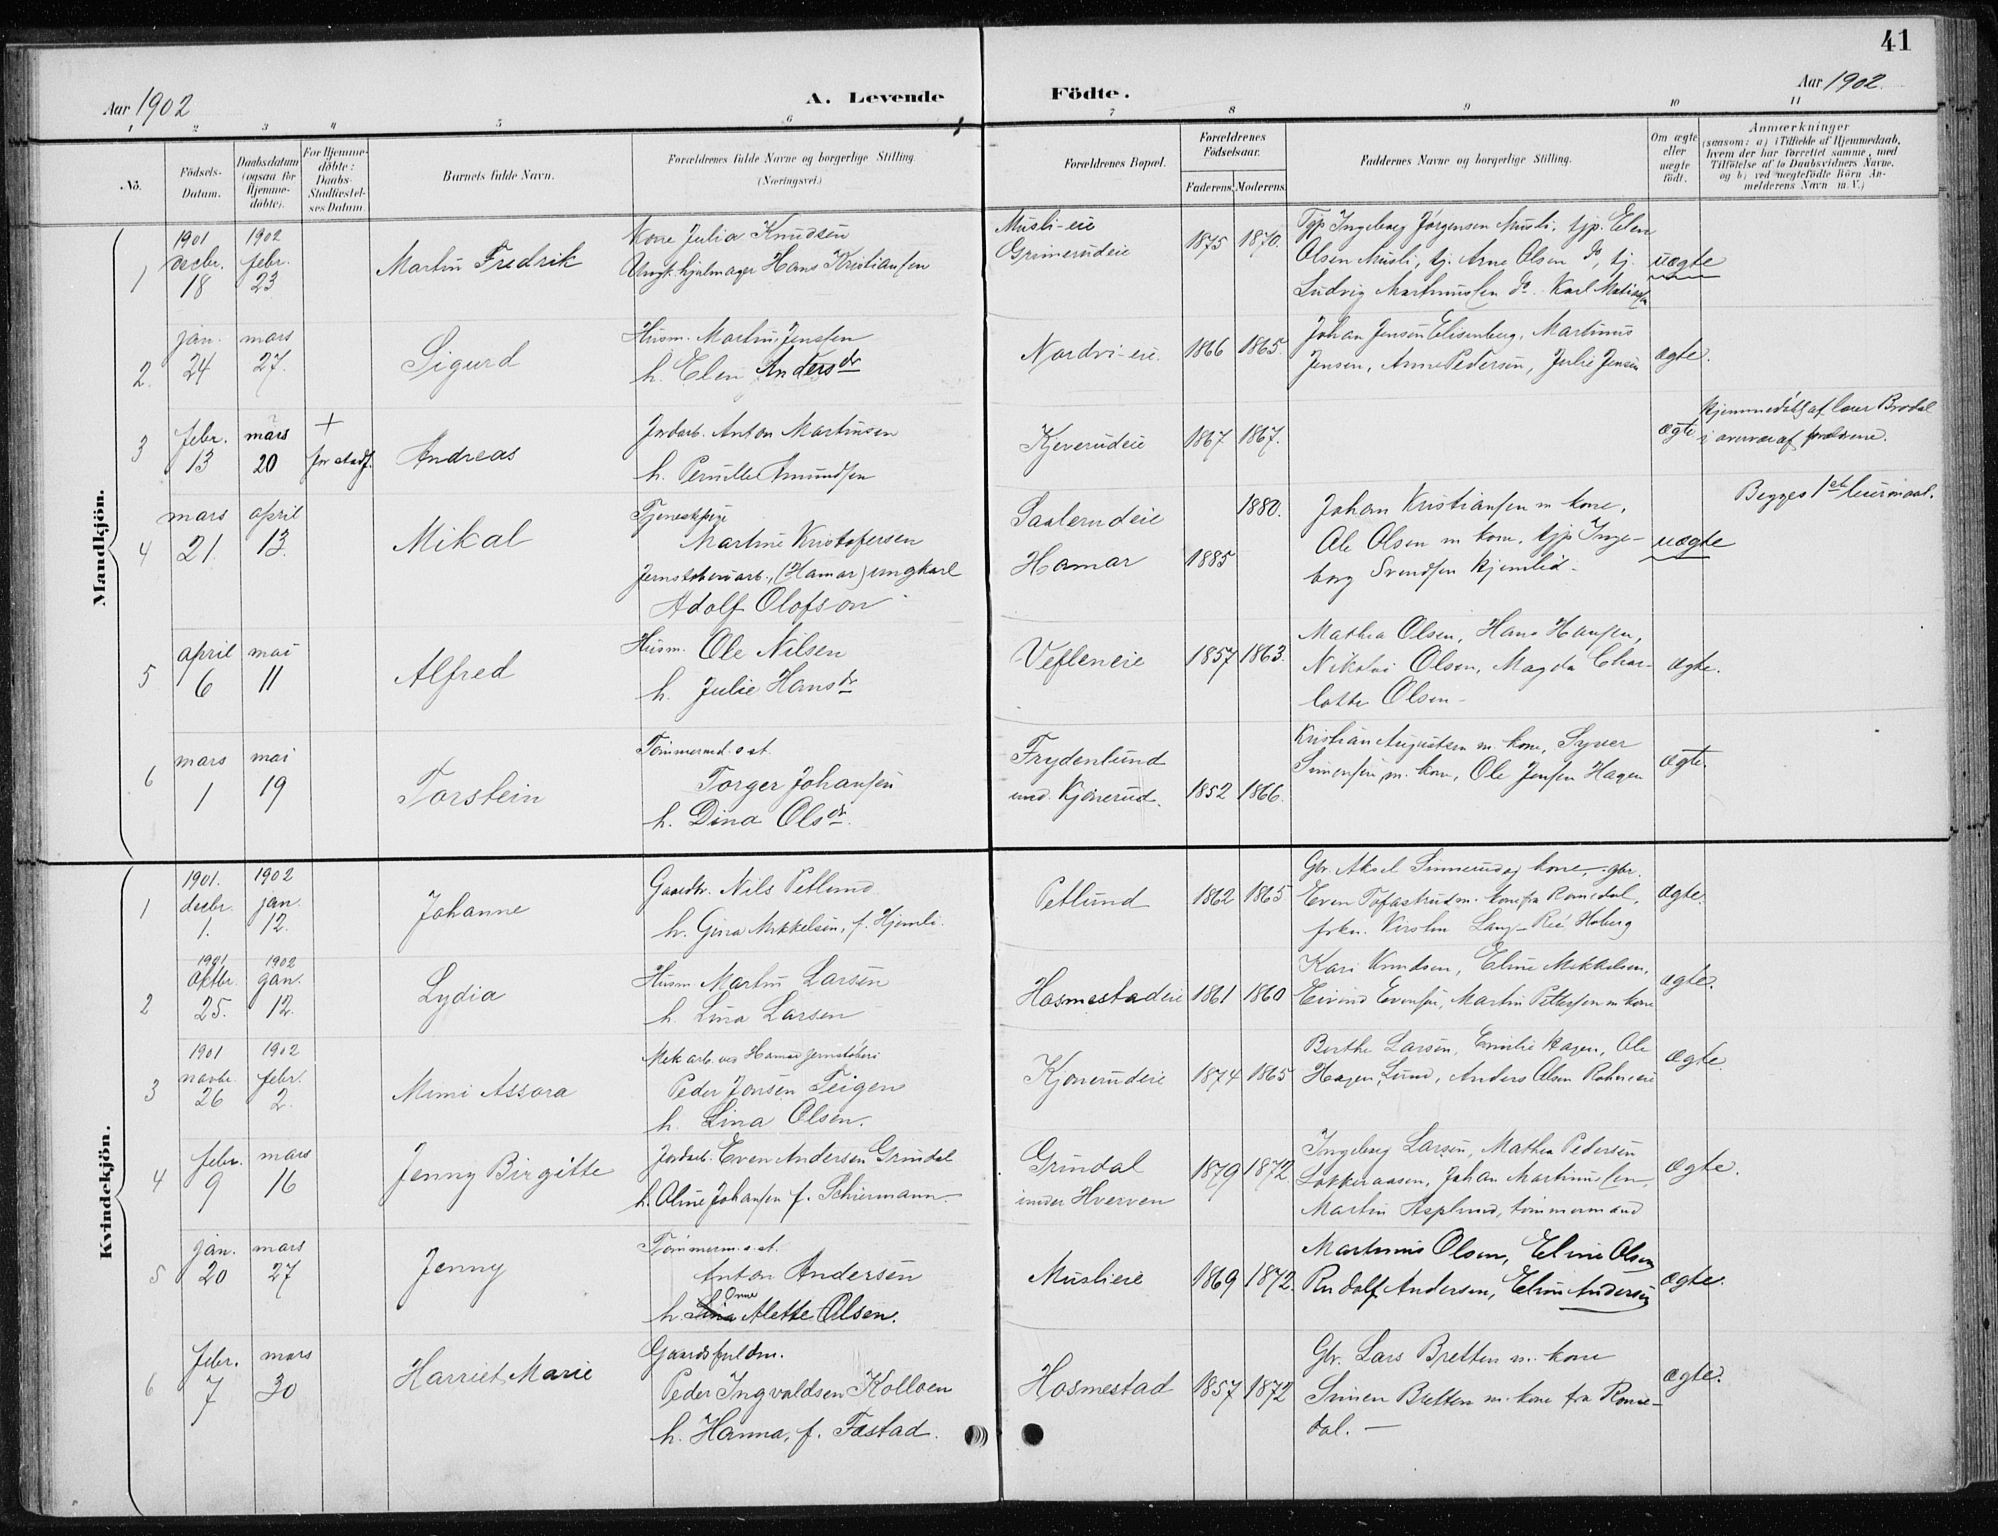 41
Aar 1902
A. Levende Födte.
Aar 1902.
1 2 3 4 5 6 7 8 9 10 11
No.
Födsels-Datum.
Daabsdatum (ogsaa for Hjemme-döbte).
For Hjemme-döbte: Daabs-Stadfæstel-ses Datum.
Barnets fulde Navn.
Forældrenes fulde Navne og borgerlige Stilling.
(Næringsvei.)
Forældrenes Bopæl.
Forældrenes Födselsaar.
Faderens. Moderens.
Faddernes Navne og borgerlige Stilling.
Om ægte eller uægte födt.
Anmærkninger
(saasom: a) i Tilfælde af Hjemmedaab, hvem der har forrettet samme, med Tilföielse af to Daabsvidners Navne, og b) ved uægtefödte Börn An-melderens Navn m. V.)
Mandkjön.
1
1901 decbr. 18
1902 febr. 23
Martin Fredrik
Kone Julia Knudsen
Ungk. hjulmager Hans Kristiansen
Musli-eie
Grimerudeie
1875 1870.
Tjp Ingeborg Jørgensen Musli, tjp. Elen
Olsen Musli, tj. Arne Olsen do, tj.
Ludvig Martinussen do. Karl
uægte
2.
jan. 24
mars 27.
Sigurd
Husm. Martin Jenssen
h. Elen Andersdr
Nordvi-eie
1866 1865.
Johan Jensen Elisenberg, Martinus
Jensen, Anne Pedersen, Julie Jensen
ægte.
3
febr. 13
mars 20
+
for stadf.
Andreas
Jordarb. Anton Martinsen
h. Pernille Amundsen
Kjeverudeie
1867 1867.
ægte
hjemmedøbt af lærer Brodal
i overvær af forældrene.
4
mars 21.
april 13.
Mikal
Tjenestepige
Martine Kristofersen
Jernstøberiarb., (Hamar) ungkarl
Adolf Olofson
Saalerudeie
Hamar
1885 1880.
Johan Kristiansen m kone,
Ole Olsen m kone, tjp Inge-
borg Svendsen Kjemlid
uægte
Begges 1ste leiermaal.
5
april 6
mai 11
Alfred
Husm. Ole Nilsen
h. Julie Hansdr
Vefleneie
1857 1863.
Mathea Olsen, Hans Hansen,
Nikolai Olsen, Magda Char-
lotte Olsen
ægte.
6
mars 1
mai 19
Torstein
Tömmermd. o st.
Torger Johansen
h. Dina Olsdr.
Frydenlund
und. Kjönerud.
1852 1866.
Kristian Augustsen m. kone, Syver
Simensen m. kone, Ole Jensen Hagen
ægte.
Kvindekjön.
1
1901. decbr. 1.
1902 jan. 12.
Johanne
Gaardbr. Nils Petlund
h. Gina Mikkelsen, f. Hjemli.
Petlund
1862 1865
Gbr. Aksel Sinnerud og kone, gbr.
Even Tofastrud m. kone fra Romedal,
frkn. Kirsten Lang-Ree, Hoberg
ægte.
2
1901 oktbr. 25.
1902 jan. 12.
Lydia
Husm Martin Larsen
h. Lina Larsen
Hosmestadeie
1861 1860
Kari Knudsen, Eline Mikkelsen,
Eivind Evensen, Martin Pettersen m kone
ægte.
3
1901 novbr. 26
1902 febr. 2.
Mimi Assora
Mek arb. ved Hamar jernstøberi
Peder Jonsen Teigen
h. Lina Olsen.
Kjonerudeie
1874 1865
Berthe Larsen, Emilie Hagen, Ole
Hagen, Lund, Anders Olsen
ægte.
4
febr. 9
mars 16
Jenny Birgitte
Jordarb. Even Andersen Grindal
h. Oline Johansen f. Schiermann
Grindal
under Hverven
1879 1872
Ingeborg Larsen, Mathea Pedersen
Løkkeraasen, Johan Martinussen
Martin Asplund, tömmermand
ægte.
5
jan. 20
mars 27
Jenny
Tömmerm. o. st.
Anton Andersen
h. Lina Anne Alette Olsen.
Muslieie
1869 1872.
Martinus Olsen, Eline Olsen
Rudolf Andersen, Eline Andersen
ægte.
6
febr. 7
mars 30
Harriet Marie
Gaardsfuldm.
Peder Ingvaldsen Kolloen
h. Hanna, f. Fæstad.
Hosmestad
1857 1872
Gbr. Lars Bretten m. kone
Simen Bretten m. kone fra Rome-
dal.
ægte.